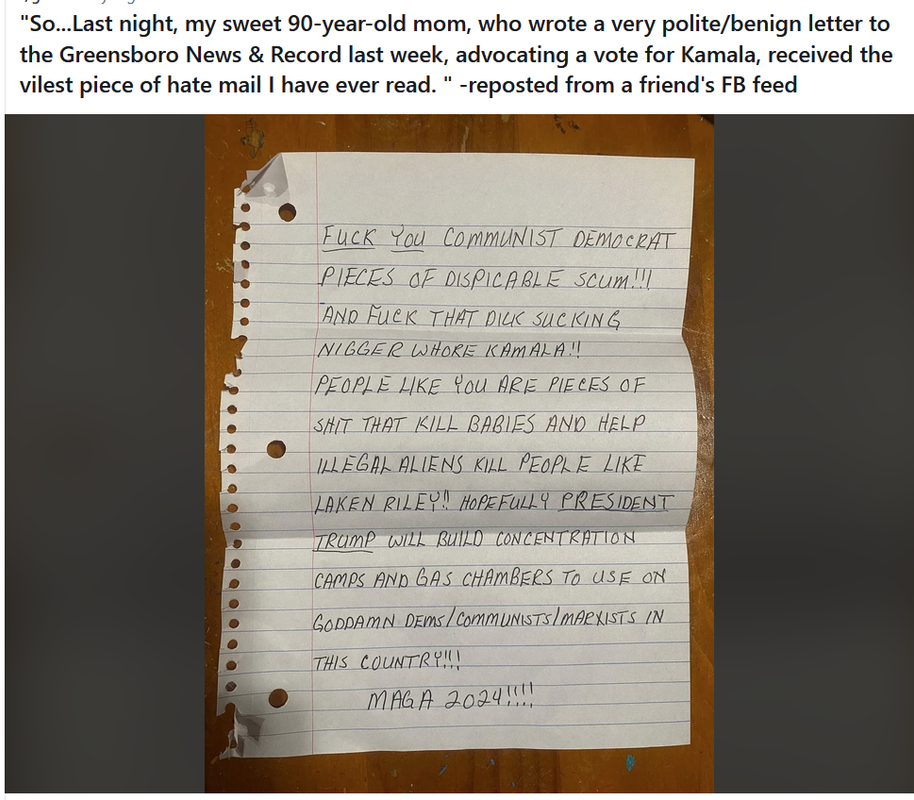 "So...Last night, my sweet 90-year-old mom, who wrote a very polite/benign letter to
the Greensboro News & Record last week, advocating a vote for Kamala, received the
vilest piece of hate mail I have ever read. " -reposted from a friend's FB feed
FUCK YOU COMMUNIST DEMOCRAT
PIECES OF DISPICABLE SCUM!!!
AND FUCK THAT DICK SUCKING
NIGGER WHORE KAMALA!!
PEOPLE LIKE YOU ARE PIECES OF
SHIT THAT KILL BABIES AND HELP
ILLEGAL ALIENS KILL PEOPLE LIKE
LAKEN RILEY!! HOPEFULLY PRESIDENT
TRUMP WILL BUILD CONCENTRATION
CAMPS AND GAS CHAMBERS TO USE ON
GODDAMN DEMS/COMMUNISTS/MARXISTS IN
THIS COUNTRY!!!
MAGA 2024!!!!